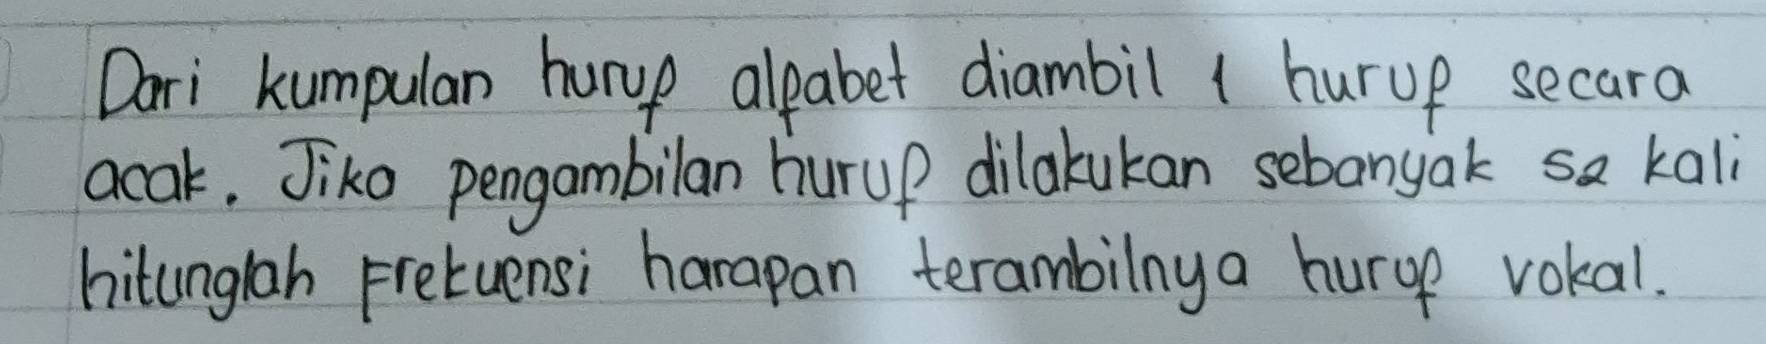 Dari kumpulan hurup alpabet diambil 1 hurup secara
acak. Jika pengambilan hurup dilakukan sebanyak 52 kali
hitunglah Frekuensi harapan terambilnya hurup vokal.